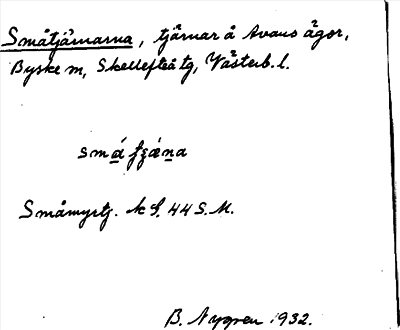 Småtjärnarna, tjärnar å Avans ägor,
Byske m, Skellefteå tg, Västerb. l.
små fʒæna
Småmyrtj. A S. 44 S.M.
B. Nygren 1932.